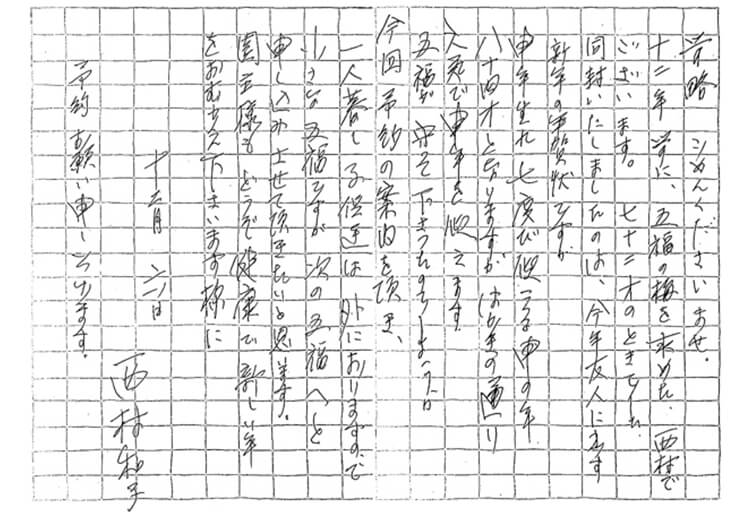 前略 ごめんくださいませ。
十二年前に、五福の梅を求めた、西村で
ございます。 七十二才のときでした
同封いたしましたのは、今年友人に出す
新年の年賀状ですが
申年生れ 七度び迎える申の年
八十四才となりますが はがきの通り
元気で申年を迎えます
五福が守って下さったのでしょうか
今回 予約の案内を頂き、
一人暮し 子供達は 外におりますので
小さな五福ですが 次の五福へと
申し込みさせて頂きたいと思います。
園主様も どうぞ 健康で 新しい年
をおむかえ下さいます様に
十二月 六日
予約お願い申し上げます。
西村